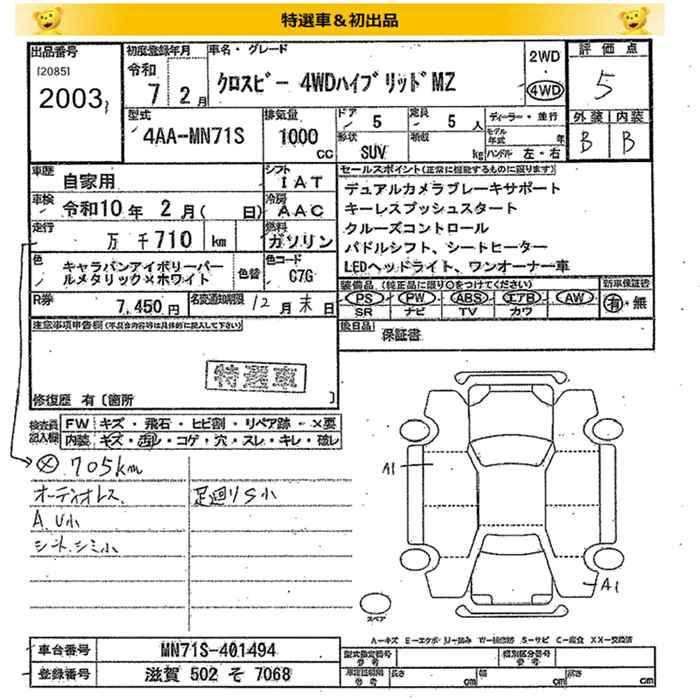 特選車＆初出品
出品番号
[2085]
2003
初度登録年月
令和 7 2月
車名・グレード
クロスビー 4WDハイブリッドMZ
2WD
4WD
評価点
5
型式
4AA-MN71S
排気量
1000 cc
ドア
5
定員
5 人
形状
SUV
積載
kg
ディーラー・並行
モデル年式 年
ハンドル 左・右
外装 内装
B B
車歴
自家用
シフト
IAT
車検
令和10年 2月( 日)
冷房
AAC
走行
万 千710 km
燃料
ガソリン
色
キャラバンアイボリーパールメタリック×ホワイト
色替
色コード
C7G
R券
7,450円
名変通知期限
12月末日
セールスポイント(正常に機能するものに限ります)
デュアルカメラブレーキサポート
キーレスプッシュスタート
クルーズコントロール
パドルシフト、シートヒーター
LEDヘッドライト、ワンオーナー車
装備品 (純正品に限り○をつけてください)
PS PW ABS エアB AW
SR ナビ TV カワ
新車保証書
有・無
後日品
保証書
注意事項申告欄(不具合内容等は具体的に記入して下さい)
特選車
修復歴 有〔箇所 〕
検査員記入欄
FW キズ・飛石・ヒビ割・リペア跡・×要
内装 キズ・汚レ・コゲ・穴・スレ・キレ・破レ
705km
オーディオレス
足廻りS小
A、U小
シート、シミ小
A1
A1
スペア
A－キズ E－エクボ U－凹み W－補修跡 S－サビ C－腐食 XX－交換済
車台番号
MN71S-401494
登録番号
滋賀 502 そ 7068
型式指定番号
参考
類別区分番号
参考
長さ cm
幅 cm
高さ cm